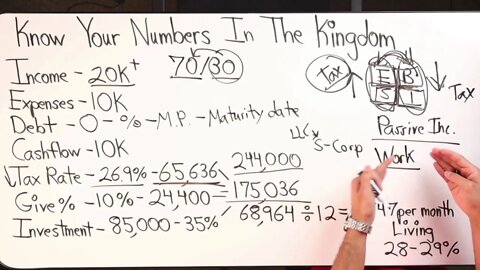 Know Your Numbers In The Kingdom
Income - 20K+
70/30
Expenses - 10K
Debt - 0 - % - M.P. - Maturity date
Cashflow - 10K
↓Tax Rate - 26.9% - 65,636
Give% - 10% - 24,400
Investment - 85,000 - 35%
244,000
175,036
68,964 ÷ 12 =
LLC
S-Corp
Tax ↑
E B
S I
↓ Tax
Passive Inc.
Work
4.7 per month
Living
28-29%